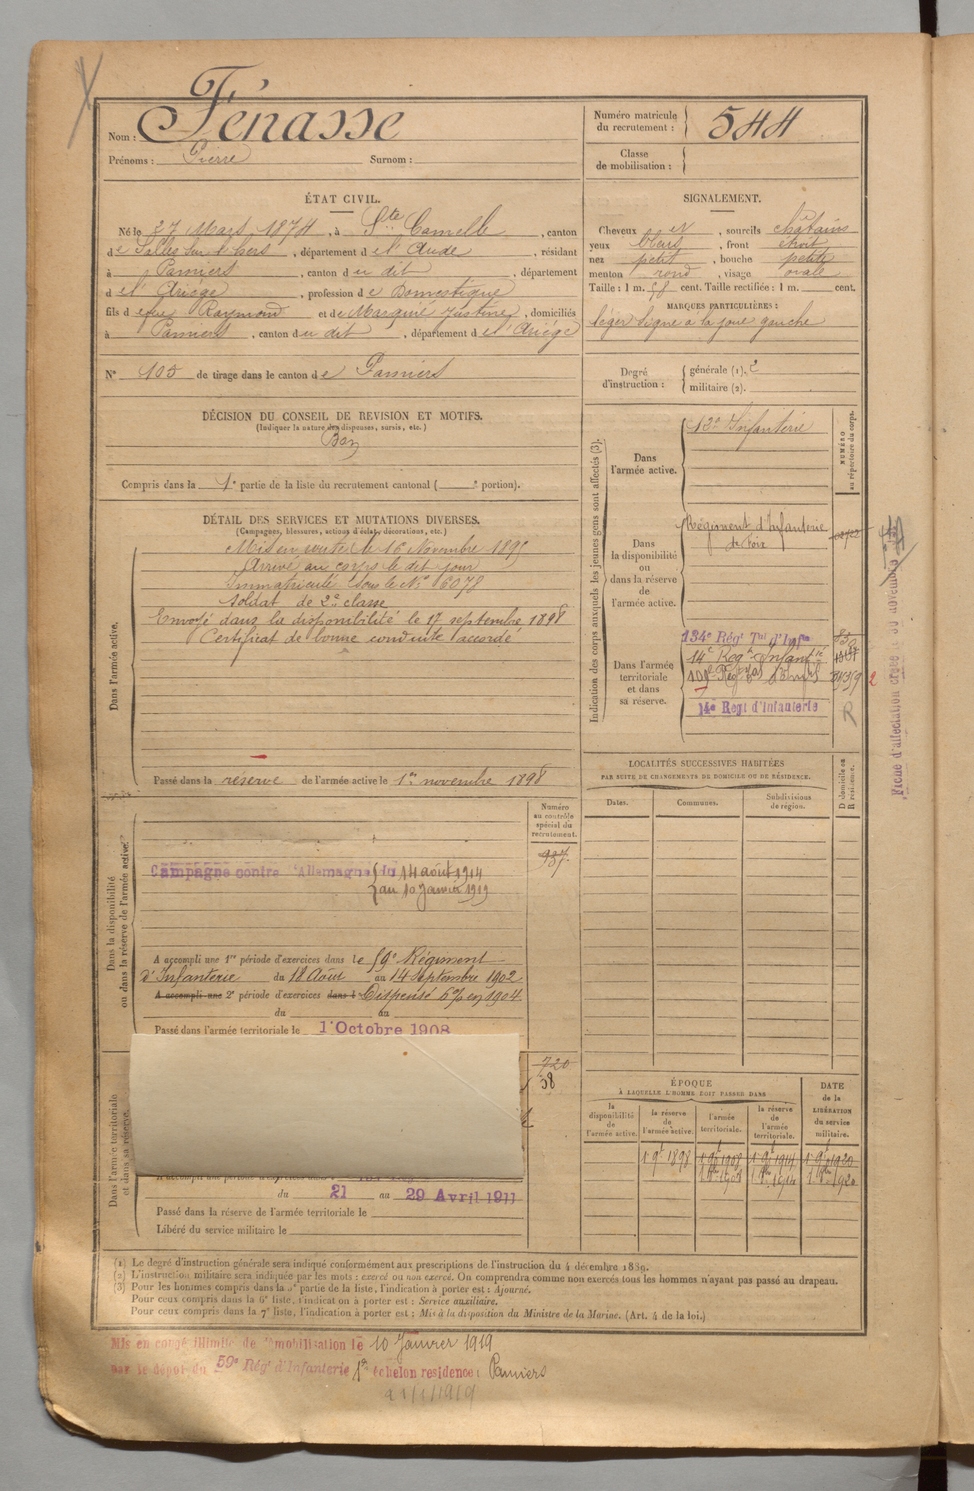 Nom : Fénasse
Prénoms : Pierre Surnom :
Numéro matricule du recrutement : 544
Classe de mobilisation :
ÉTAT CIVIL.
Né le 27 Mars 1874, à Ste Camelle, canton
de Salles sur l'hers, département de l'Aude, résidant
à Pamiers, canton du dit, département
d el'Ariège, profession de Domestique
fils d efeu Raymond et de Macquié Justine, domiciliés
à Pamiers, canton du dit, département de l'Ariége
N° 105 de tirage dans le canton de Pamiers
SIGNALEMENT.
Cheveux et, sourcils châtains
yeux bleus, front étroit
nez petit, bouche petite
menton rond, visage ovale
Taille : 1 m. 58 cent. Taille rectifiée : 1 m. cent.
MARQUES PARTICULIÈRES :
léger signe à la joue gauche
Degré d'instruction : générale (1). 2
militaire (2).
DÉCISION DU CONSEIL DE REVISION ET MOTIFS.
(Indiquer la nature des dispenses, sursis, etc.)
Bon
Compris dans la 1e partie de la liste du recrutement cantonal ( e portion).
DÉTAIL DES SERVICES ET MUTATIONS DIVERSES.
(Campagnes, blessures, actions d'éclat, décorations, etc.)
Dans l'armée active.
Mis en route le 16 Novembre 1895
Arrivé au corps le dit jour
Immatriculé sous le No 6078
soldat de 2e classe
Envoyé dans la disponibilité le 17 septembre 1898
Certificat de bonne conduite accordé
Passé dans la réserve de l'armée active le 1er novembre 1898
Indication des corps auxquels les jeunes gens sont affectés (3).
NUMÉRO au répertoire du corps.
Dans l'armée active.
Infanterie
Dans la disponibilité ou dans la réserve de l'armée active.
Régiment d'Infanterie
de Foix
Dans l'armée territoriale et dans sa réserve.
134e Régt Tal d'Infie
14e Régt Infantie
14e Régt d'Infanterie
R
LOCALITÉS SUCCESSIVES HABITÉES
PAR SUITE DE CHANGEMENTS DE DOMICILE OU DE RÉSIDENCE.
Dates. Communes. Subdivisions de région. D domicile ou R résidence.
Dans la disponibilité ou dans la réserve de l'armée active.
Numéro au contrôle spécial du recrutement.
Campagne contre l'Allemagne du 14 août 1914
au 10 Janvier 1919
A accompli une 1re période d'exercices dans le 59e Régiment
d'Infanterie du 18 Août au 14 Septembre 1902
A accompli une 2e période d'exercices dans l Dispensé en 1904
du au
Passé dans l'armée territoriale le 1er Octobre 1908
Dans l'armée territoriale et dans sa réserve.
720
58
du 21 au 29 Avril 1911
Passé dans la réserve de l'armée territoriale le
Libéré du service militaire le
ÉPOQUE
À LAQUELLE L'HOMME DOIT PASSER DANS
la disponibilité de l'armée active. la réserve de l'armée active. l'armée territoriale. la réserve de l'armée territoriale.
DATE de la LIBÉRATION du service militaire.
1 9bre 1898 1 9bre 1908 1 9bre 1914 1 9bre 1920
(1) Le degré d'instruction générale sera indiqué conformément aux prescriptions de l'instruction du 4 décembre 1889.
(2) L'instruction militaire sera indiquée par les mots : exercé ou non exercé. On comprendra comme non exercés tous les hommes n'ayant pas passé au drapeau.
(3) Pour les hommes compris dans la 5e partie de la liste, l'indication à porter est : Ajourné.
Pour ceux compris dans la 6e liste, l'indication à porter est : Service auxiliaire.
Pour ceux compris dans la 7e liste, l'indication à porter est : Mis à la disposition du Ministre de la Marine. (Art. 4 de la loi.)
Mis en congé illimité de démobilisation le 10 Janvier 1919
par le dépôt du 59e Rég. d'Infanterie 1er échelon résidence : Pamiers